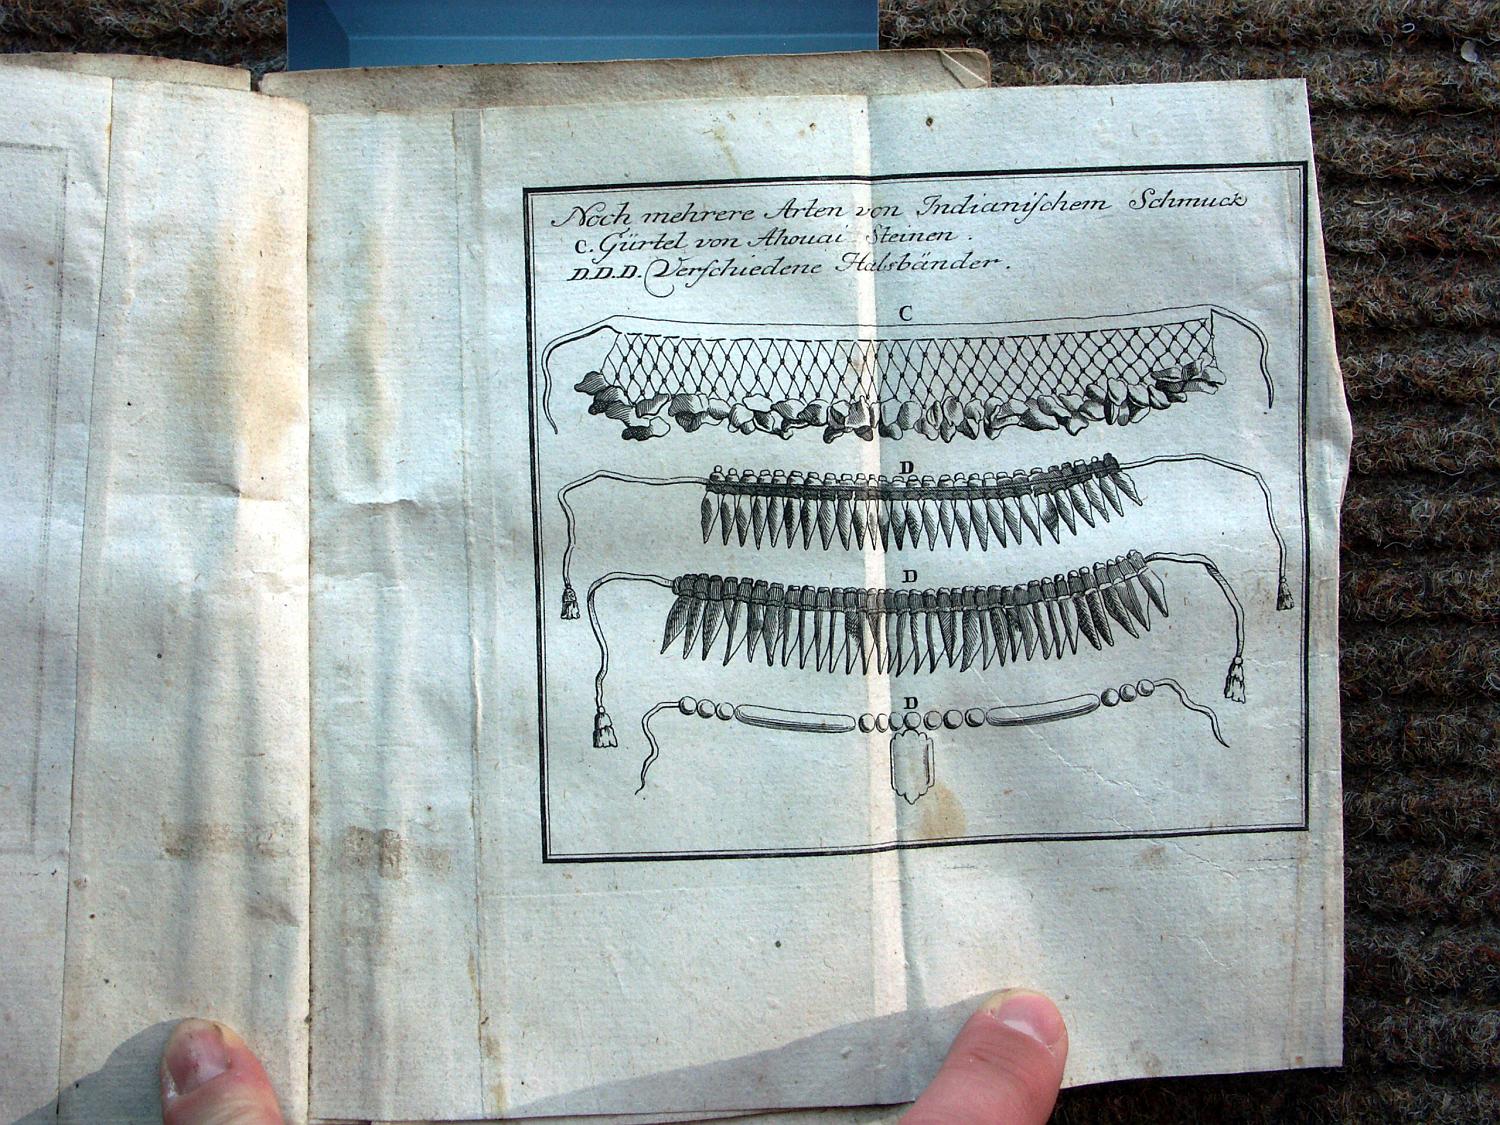 Noch mehrere Arten von Indianiſchem Schmuck
C. Gürtel von Ahouai Steinen.
D.D.D. Verſchiedene Halsbänder.
C
D
D
D